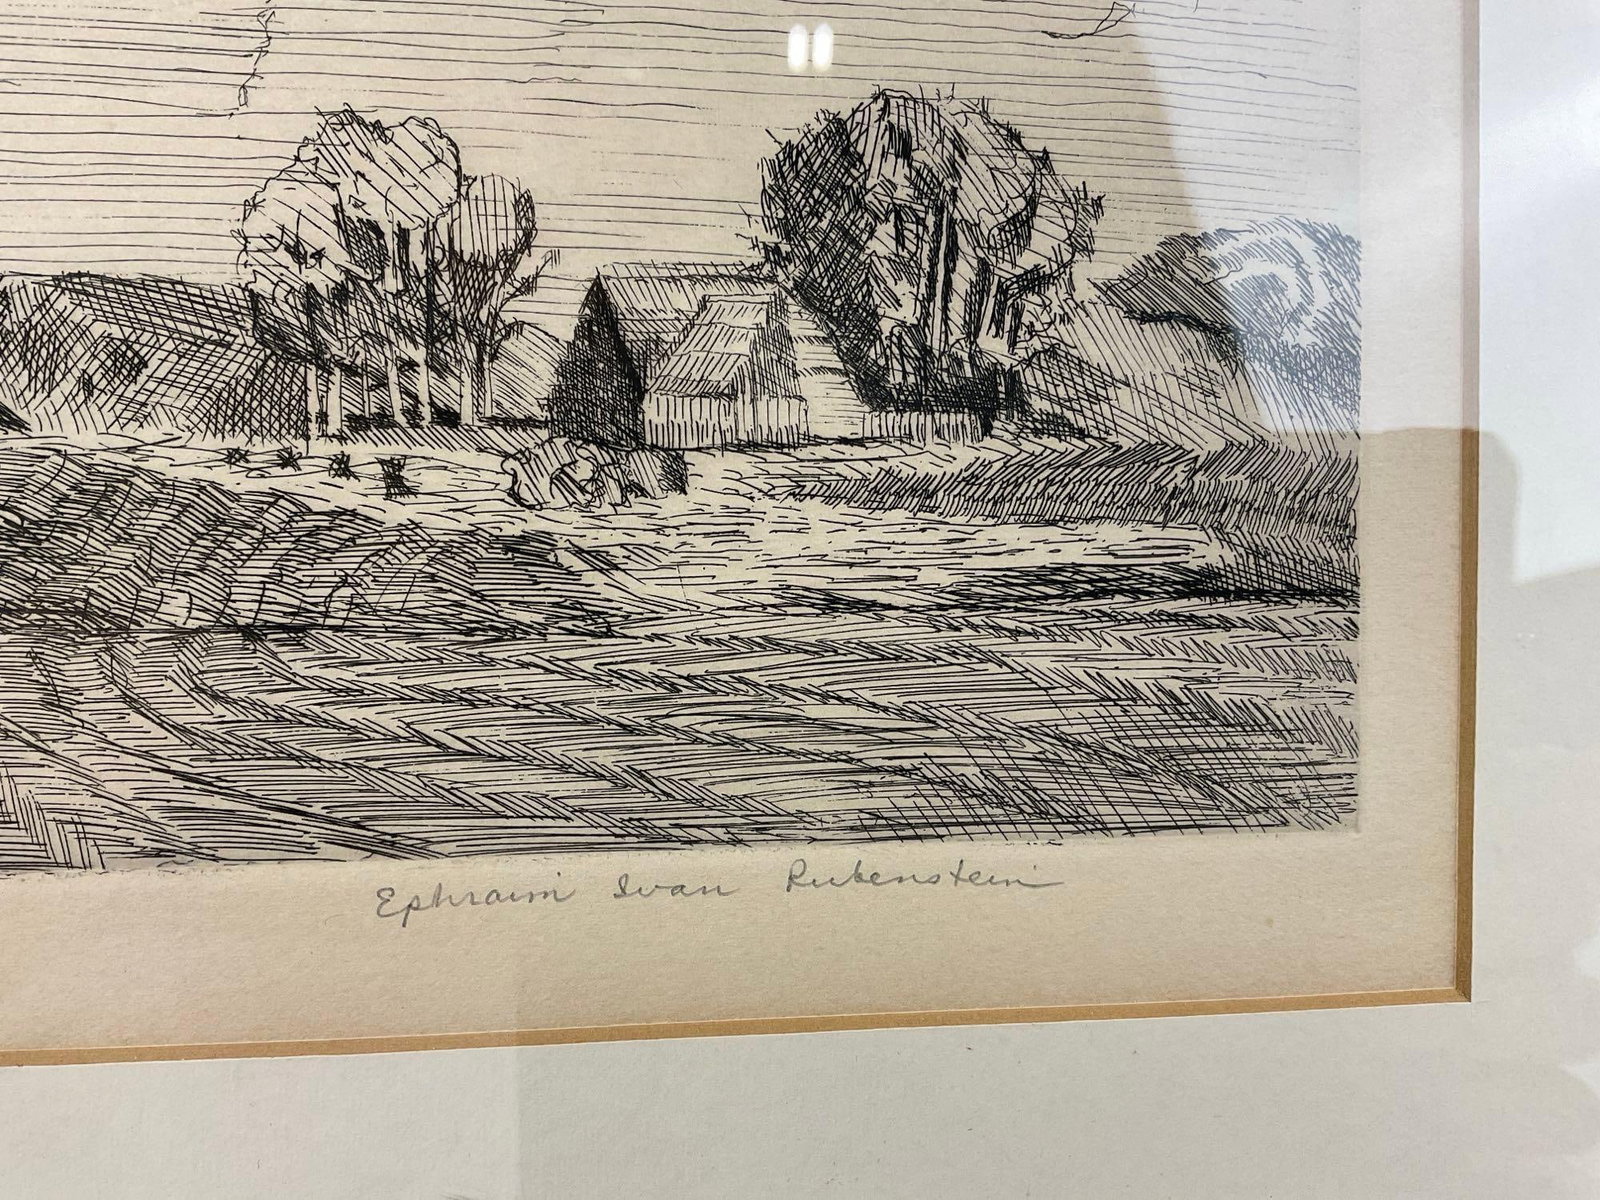 Ephraim Ivan Rubenstein